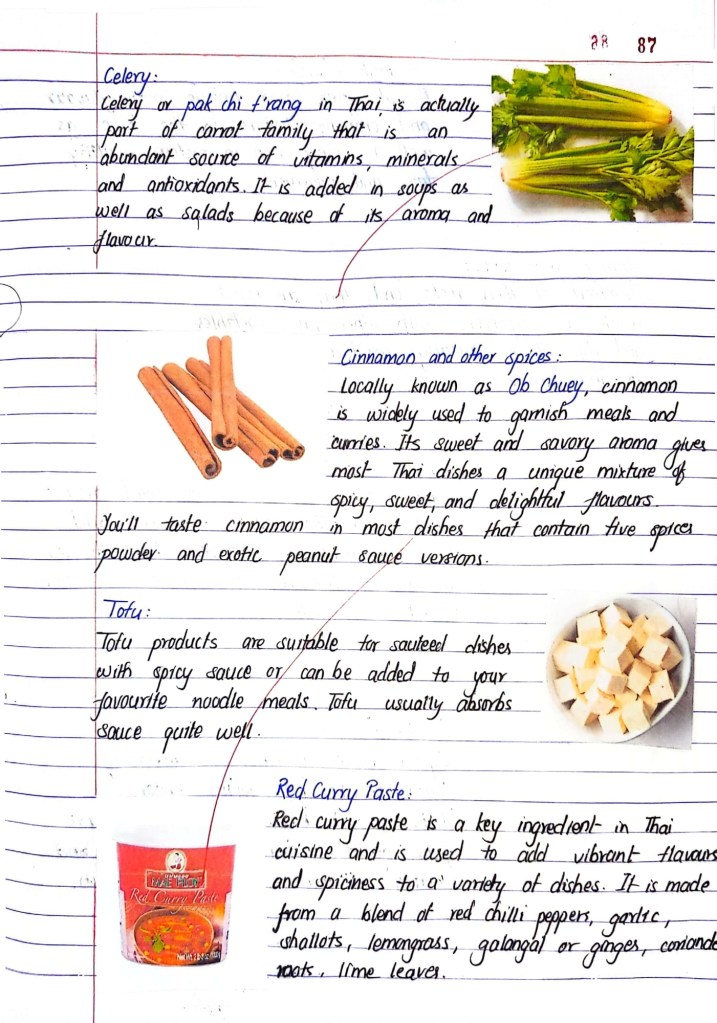 28 87
Celery:
Celery or pak chi f'rang in Thai, is actually
part of carrot family that is an
abundant source of vitamins, minerals
and antioxidants. It is added in soups as
well as salads because of its aroma and
flavour.
Cinnamon and other spices:
Locally known as Ob Chuey, cinnamon
is widely used to garnish meals and
curries. Its sweet and savory aroma gives
most Thai dishes a unique mixture of
spicy, sweet, and delightful flavours.
You'll taste cinnamon in most dishes that contain five spices
powder and exotic peanut sauce versions.
Tofu:
Tofu products are suitable for sauteed dishes
with spicy sauce or can be added to your
favourite noodle meals. Tofu usually absorbs
sauce quite well.
Red Curry Paste:
Red curry paste is a key ingredient in Thai
cuisine and is used to add vibrant flavours
and spiciness to a variety of dishes. It is made
from a blend of red chilli peppers, garlic,
shallots, lemongrass, galangal or ginges, coriande
roots, lime leaves.
MAE PLOY
Red Curry Paste